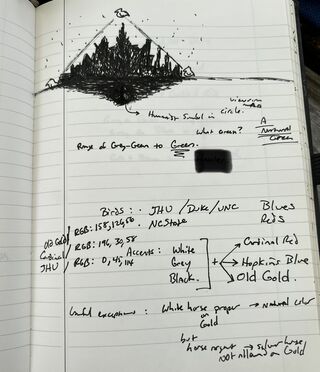 Humanist Symbol in circle.
What Green?
A
Natural
Green
Range of Grey-Green to Green.
Birds: JHU / Duke / UNC Blues
NCState Reds
Old Gold / RGB: 158,126,56
Cardinal / RGB: 196, 30, 58
JHU / RGB: 0, 45, 114
Accents: White
Grey
Black.
+
Cardinal Red
Hopkins Blue
Old Gold.
Useful exceptions: White horse proper → Natural color
on Gold
but
horse argent → silver horse
NOT allowed on Gold